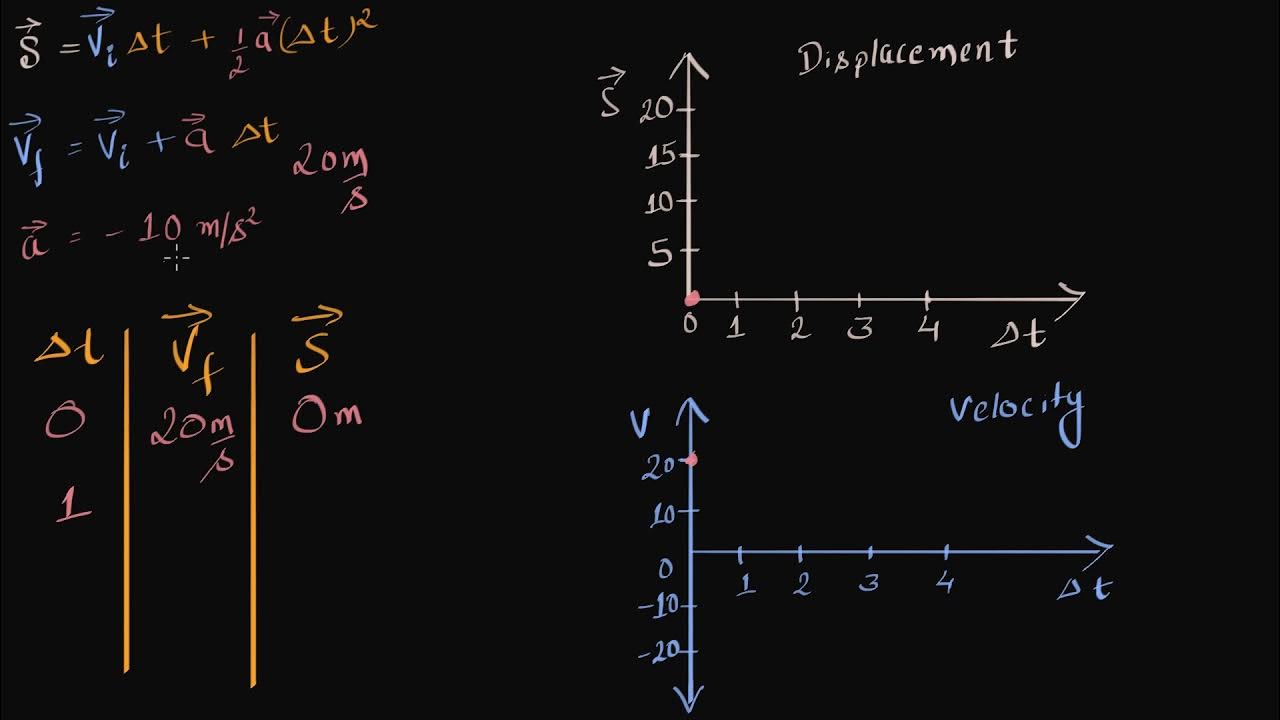 S⃗ = v⃗ᵢ Δt + ½ a⃗ (Δt)²
v⃗_f = v⃗ᵢ + a⃗ Δt
20 m/s
a⃗ = - 10 m/s²
Δt | V⃗_f | S⃗
0 | 20 m/s | 0m
1
Displacement
S⃗
20
15
10
5
0 1 2 3 4 Δt
Velocity
V
20
10
0
1 2 3 4 Δt
-10
-20